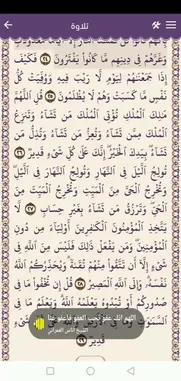 تلاوة
وَغَرَّهُمْ فِي دِينِهِم مَّا كَانُوا۟ يَفْتَرُونَ ۝٢٤ فَكَيْفَ
إِذَا جَمَعْنَٰهُمْ لِيَوْمٍ لَّا رَيْبَ فِيهِ وَوُفِّيَتْ كُلُّ
نَفْسٍ مَّا كَسَبَتْ وَهُمْ لَا يُظْلَمُونَ ۝٢٥ قُلِ ٱللَّهُمَّ
مَٰلِكَ ٱلْمُلْكِ تُؤْتِى ٱلْمُلْكَ مَن تَشَآءُ وَتَنزِعُ
ٱلْمُلْكَ مِمَّن تَشَآءُ وَتُعِزُّ مَن تَشَآءُ وَتُذِلُّ مَن
تَشَآءُ بِيَدِكَ ٱلْخَيْرُ إِنَّكَ عَلَىٰ كُلِّ شَىْءٍ قَدِيرٌ ۝٢٦
تُولِجُ ٱلَّيْلَ فِى ٱلنَّهَارِ وَتُولِجُ ٱلنَّهَارَ فِى ٱلَّيْلِ
وَتُخْرِجُ ٱلْحَىَّ مِنَ ٱلْمَيِّتِ وَتُخْرِجُ ٱلْمَيِّتَ مِنَ
ٱلْحَىِّ وَتَرْزُقُ مَن تَشَآءُ بِغَيْرِ حِسَابٍ ۝٢٧ لَّا
يَتَّخِذِ ٱلْمُؤْمِنُونَ ٱلْكَٰفِرِينَ أَوْلِيَآءَ مِن دُونِ
ٱلْمُؤْمِنِينَ وَمَن يَفْعَلْ ذَٰلِكَ فَلَيْسَ مِنَ ٱللَّهِ فِى
شَىْءٍ إِلَّآ أَن تَتَّقُوا۟ مِنْهُمْ تُقَىٰةً وَيُحَذِّرُكُمُ ٱللَّهُ
نَفْسَهُۥ وَإِلَى ٱللَّهِ ٱلْمَصِيرُ ۝٢٨ قُلْ إِن تُخْفُوا۟ مَا فِى
صُدُورِكُمْ أَوْ تُبْدُوهُ يَعْلَمْهُ ٱللَّهُ وَيَعْلَمُ مَا فِى
اللهم انك عفو تحب العفو فاعفو عنا
قَدِيرٌ ۝٢٩